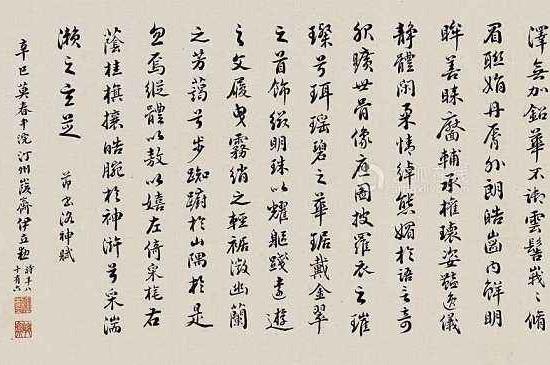 澤無加鉛華不御雲髻峩峩脩
眉聯娟丹脣外朗皓齒內鮮明
眸善睞靨輔承權瓌姿豔逸儀
靜體閑柔情綽態媚於語言奇
服曠世骨像應圖披羅衣之璀
璨兮珥瑶碧之華琚戴金翠
之首飾綴明珠以耀軀踐遠遊
之文履曳霧綃之輕裾微幽蘭
之芳藹兮步踟躕於山隅於是
忽焉縱體以敖以嬉左倚采旄右
蔭桂旗攘皓腕於神滸兮采湍
瀨之玄芝
節書洛神賦
辛巳莫春中浣汀州齋伊立勳
時年八
十有六